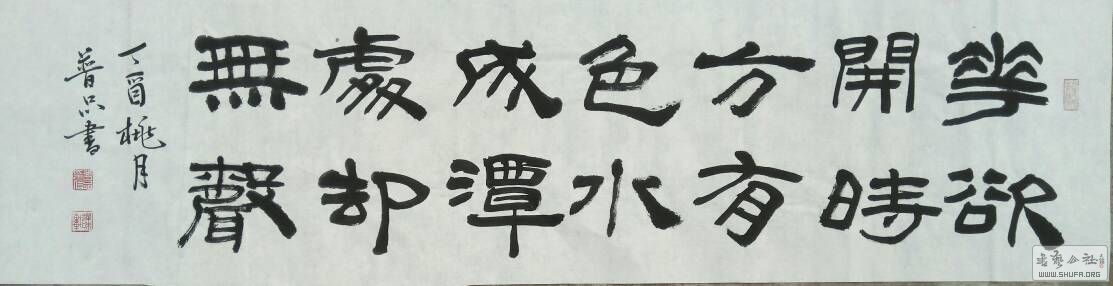 華欲
開時
方有
色水
成潭
處却
無聲
丁酉桃月
普只書
书艺公社
WWW.SHUFA.ORG